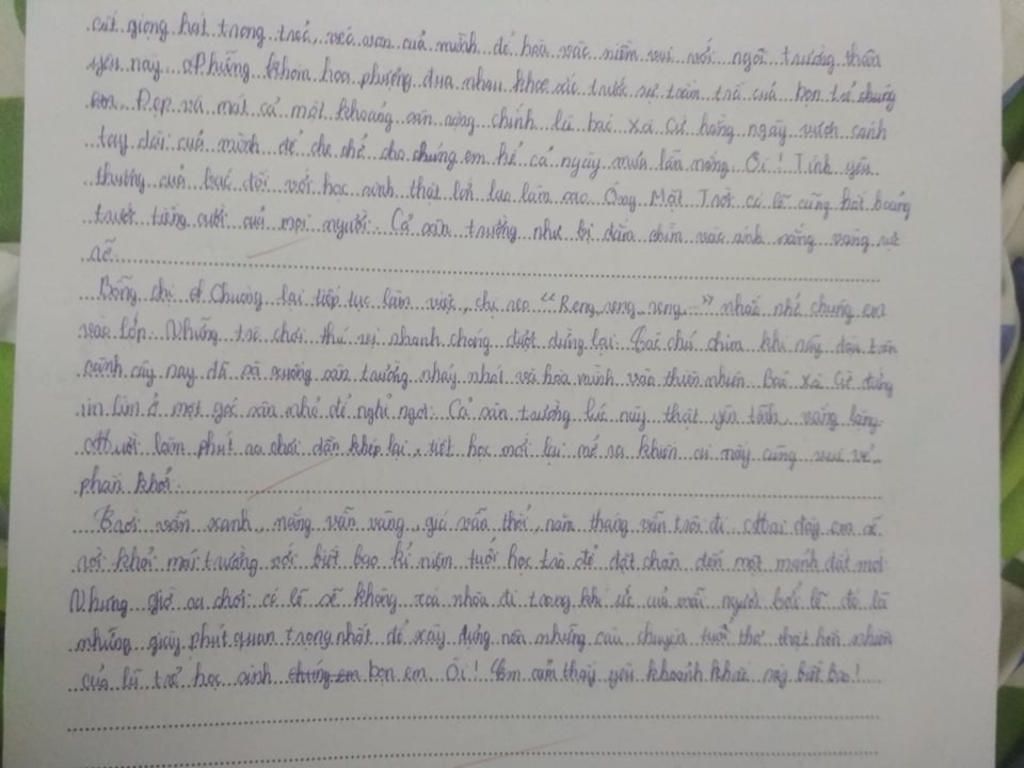 cất giọng hát trong trẻo, véo von của mình để hòa vào niềm vui với ngôi trường thân
yêu này. Những khóm hoa phượng đua nhau khoe sắc trước sự của bọn trẻ chúng
em. Đẹp và mát cả một khoảng sân rộng chính là bác xà cừ hàng ngày vươn cánh
tay dài của mình để che chở cho chúng em kể cả ngày mưa lẫn nắng. Ôi! Tình yêu
thương của bác đối với học sinh thật lớn lao làm sao. Ông Mặt Trời có lẽ cũng
trước tiếng cười của mọi người. Cả sân trường như bị đắm chìm vào ánh nắng vàng rực
rỡ.
Bỗng chị Chuông lại tiếp tục làm việc, chị reo "Reng, reng, reng..." nhắc nhở chúng em
vào lớp. Những trò chơi thú vị nhanh chóng được dừng lại. Các chú chim khi nãy đậu trên
cành cây nay đã sà xuống sân trường nhảy nhót và hòa mình vào thiên nhiên. Bác xà cừ đứng
im lìm ở một góc sân nhỏ để nghỉ ngơi. Cả sân trường lúc này thật yên tĩnh, vắng lặng.
Mười lăm phút ra chơi dần khép lại, tiết học mới lại mở ra khiến ai nấy cũng vui vẻ
phấn khởi.
Trời vẫn xanh, nắng vẫn vàng, gió vẫn thổi, năm tháng vẫn trôi đi. Mai đây em sẽ
rời khỏi mái trường với biết bao kỉ niệm tuổi học trò để đặt chân đến một mảnh đất mới
Nhưng giờ ra chơi có lẽ sẽ không xoá nhòa đi trong khí ức của mỗi người bởi lẽ đó là
những giây phút quan trọng nhất để xây dựng nên những câu chuyện tuổi thơ thật hồn nhiên
của lũ trẻ học sinh chúng em bọn em. Ôi! Em cảm thấy yêu khoảnh khắc này biết bao!